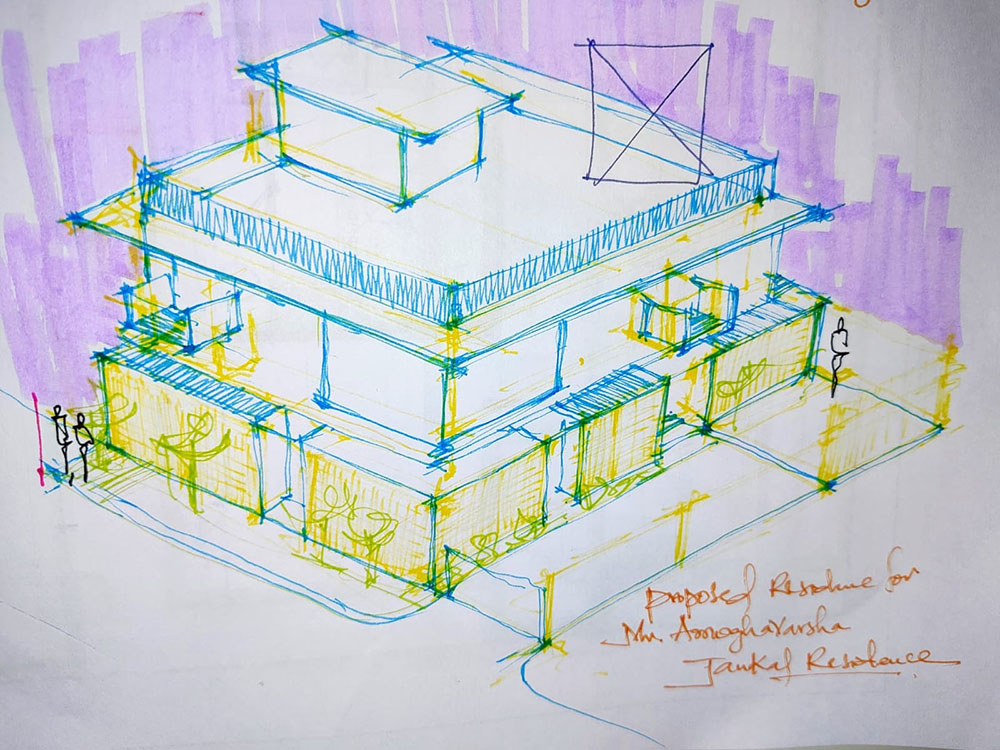 Proposed Residence for
Mr. Amoghavarsha
Jankal Residence